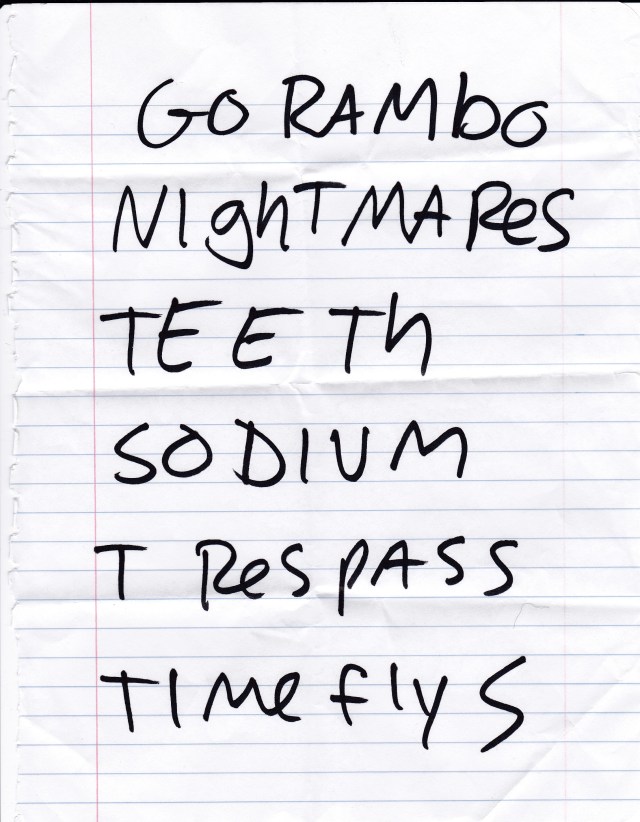 GO RAMbO
NIghTMARes
TEETh
SODIUM
TResPASS
TIMe flyS